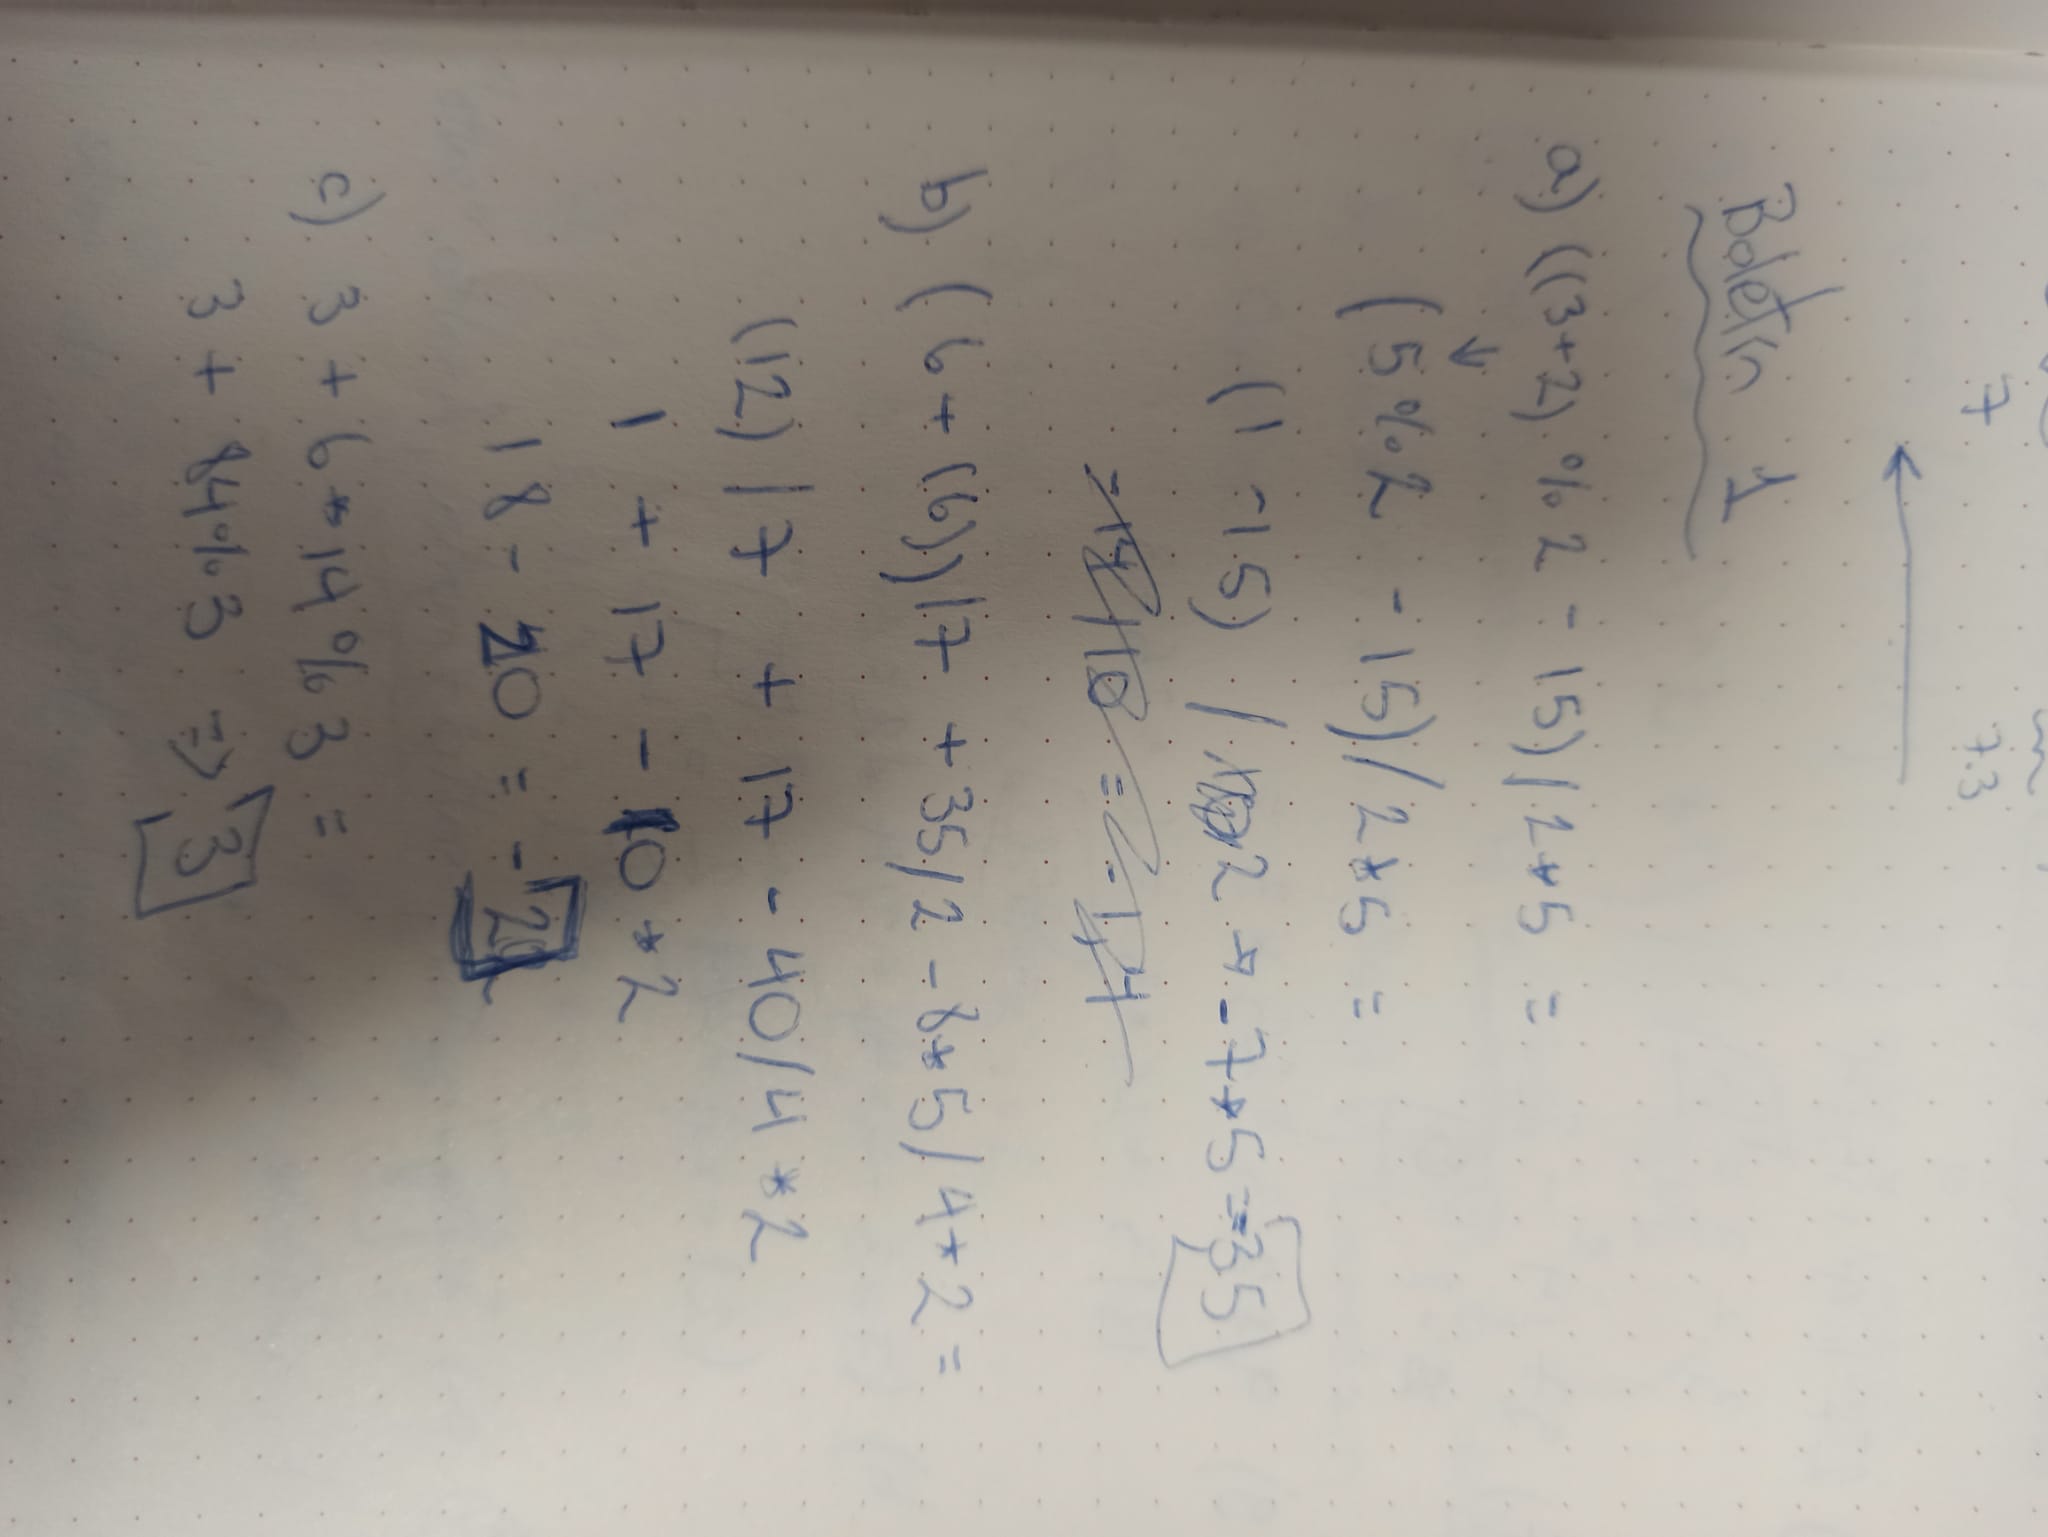 7 7.3
Boletín 1
a) ((3+2) % 2 - 15) / 2 * 5 =
(5 % 2 - 15) / 2 * 5 =
(1 - 15) / 2 → -7 * 5 = -35
-14/10 = -1,4
b) (6 + (6)) / 7 + 35 / 2 - 8 * 5 / 4 * 2 =
(12) / 7 + 17 - 40 / 4 * 2
1 + 17 - 10 * 2
18 - 20 = -2
c) 3 + 6 * 14 % 3 =
3 + 84 % 3 => 3